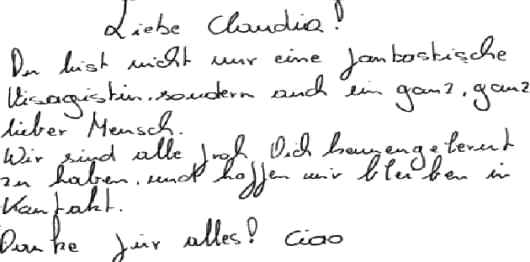 Liebe Claudia!
Du bist nicht nur eine fantastische
Visagistin, sondern auch ein ganz, ganz
lieber Mensch.
Wir sind alle froh Dich kennengelernt
zu haben, und hoffen wir bleiben in
Kontakt.
Danke für alles! Ciao